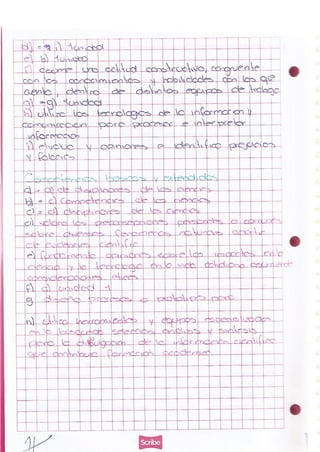 d) = a i) 1unidad
e) b) 1unidad
f) asume una actitud constructiva, congruente
con los conocimientos y habilidades con los que
cuenta, dentro de distintos equipos de trabajo
g) =g) 1unidad
h) utiliza las tecnologias de la informacion y
comunicacion para procesar e interpretar
informacion
i) evalua y opiniones e identifica prejuicios
y falacias
Competencias basicas y extendidas
a = a) de disciplinares de las ciencias
b) = c) competencias de las ciencias
c) = a) disciplinares de las ciencias
d) valora las preconcepciones personales o comunes
sobre diversos fenomenos naturales apartir
de evidencias cientificas
e) fundamenta opiniones sobre los impactos en la
ciencia y la tecnologia en la vida cotidiana asumiendo
consideraciones eticas
f) a) unidad 1
g diseña procesos o prototipos para
h) utiliza herramientas y equipos especializados
en la busqueda seleccion analisis y sintesis
para la divulgacion de la informacion cientifica
que contribuya formacion academica
Scribe